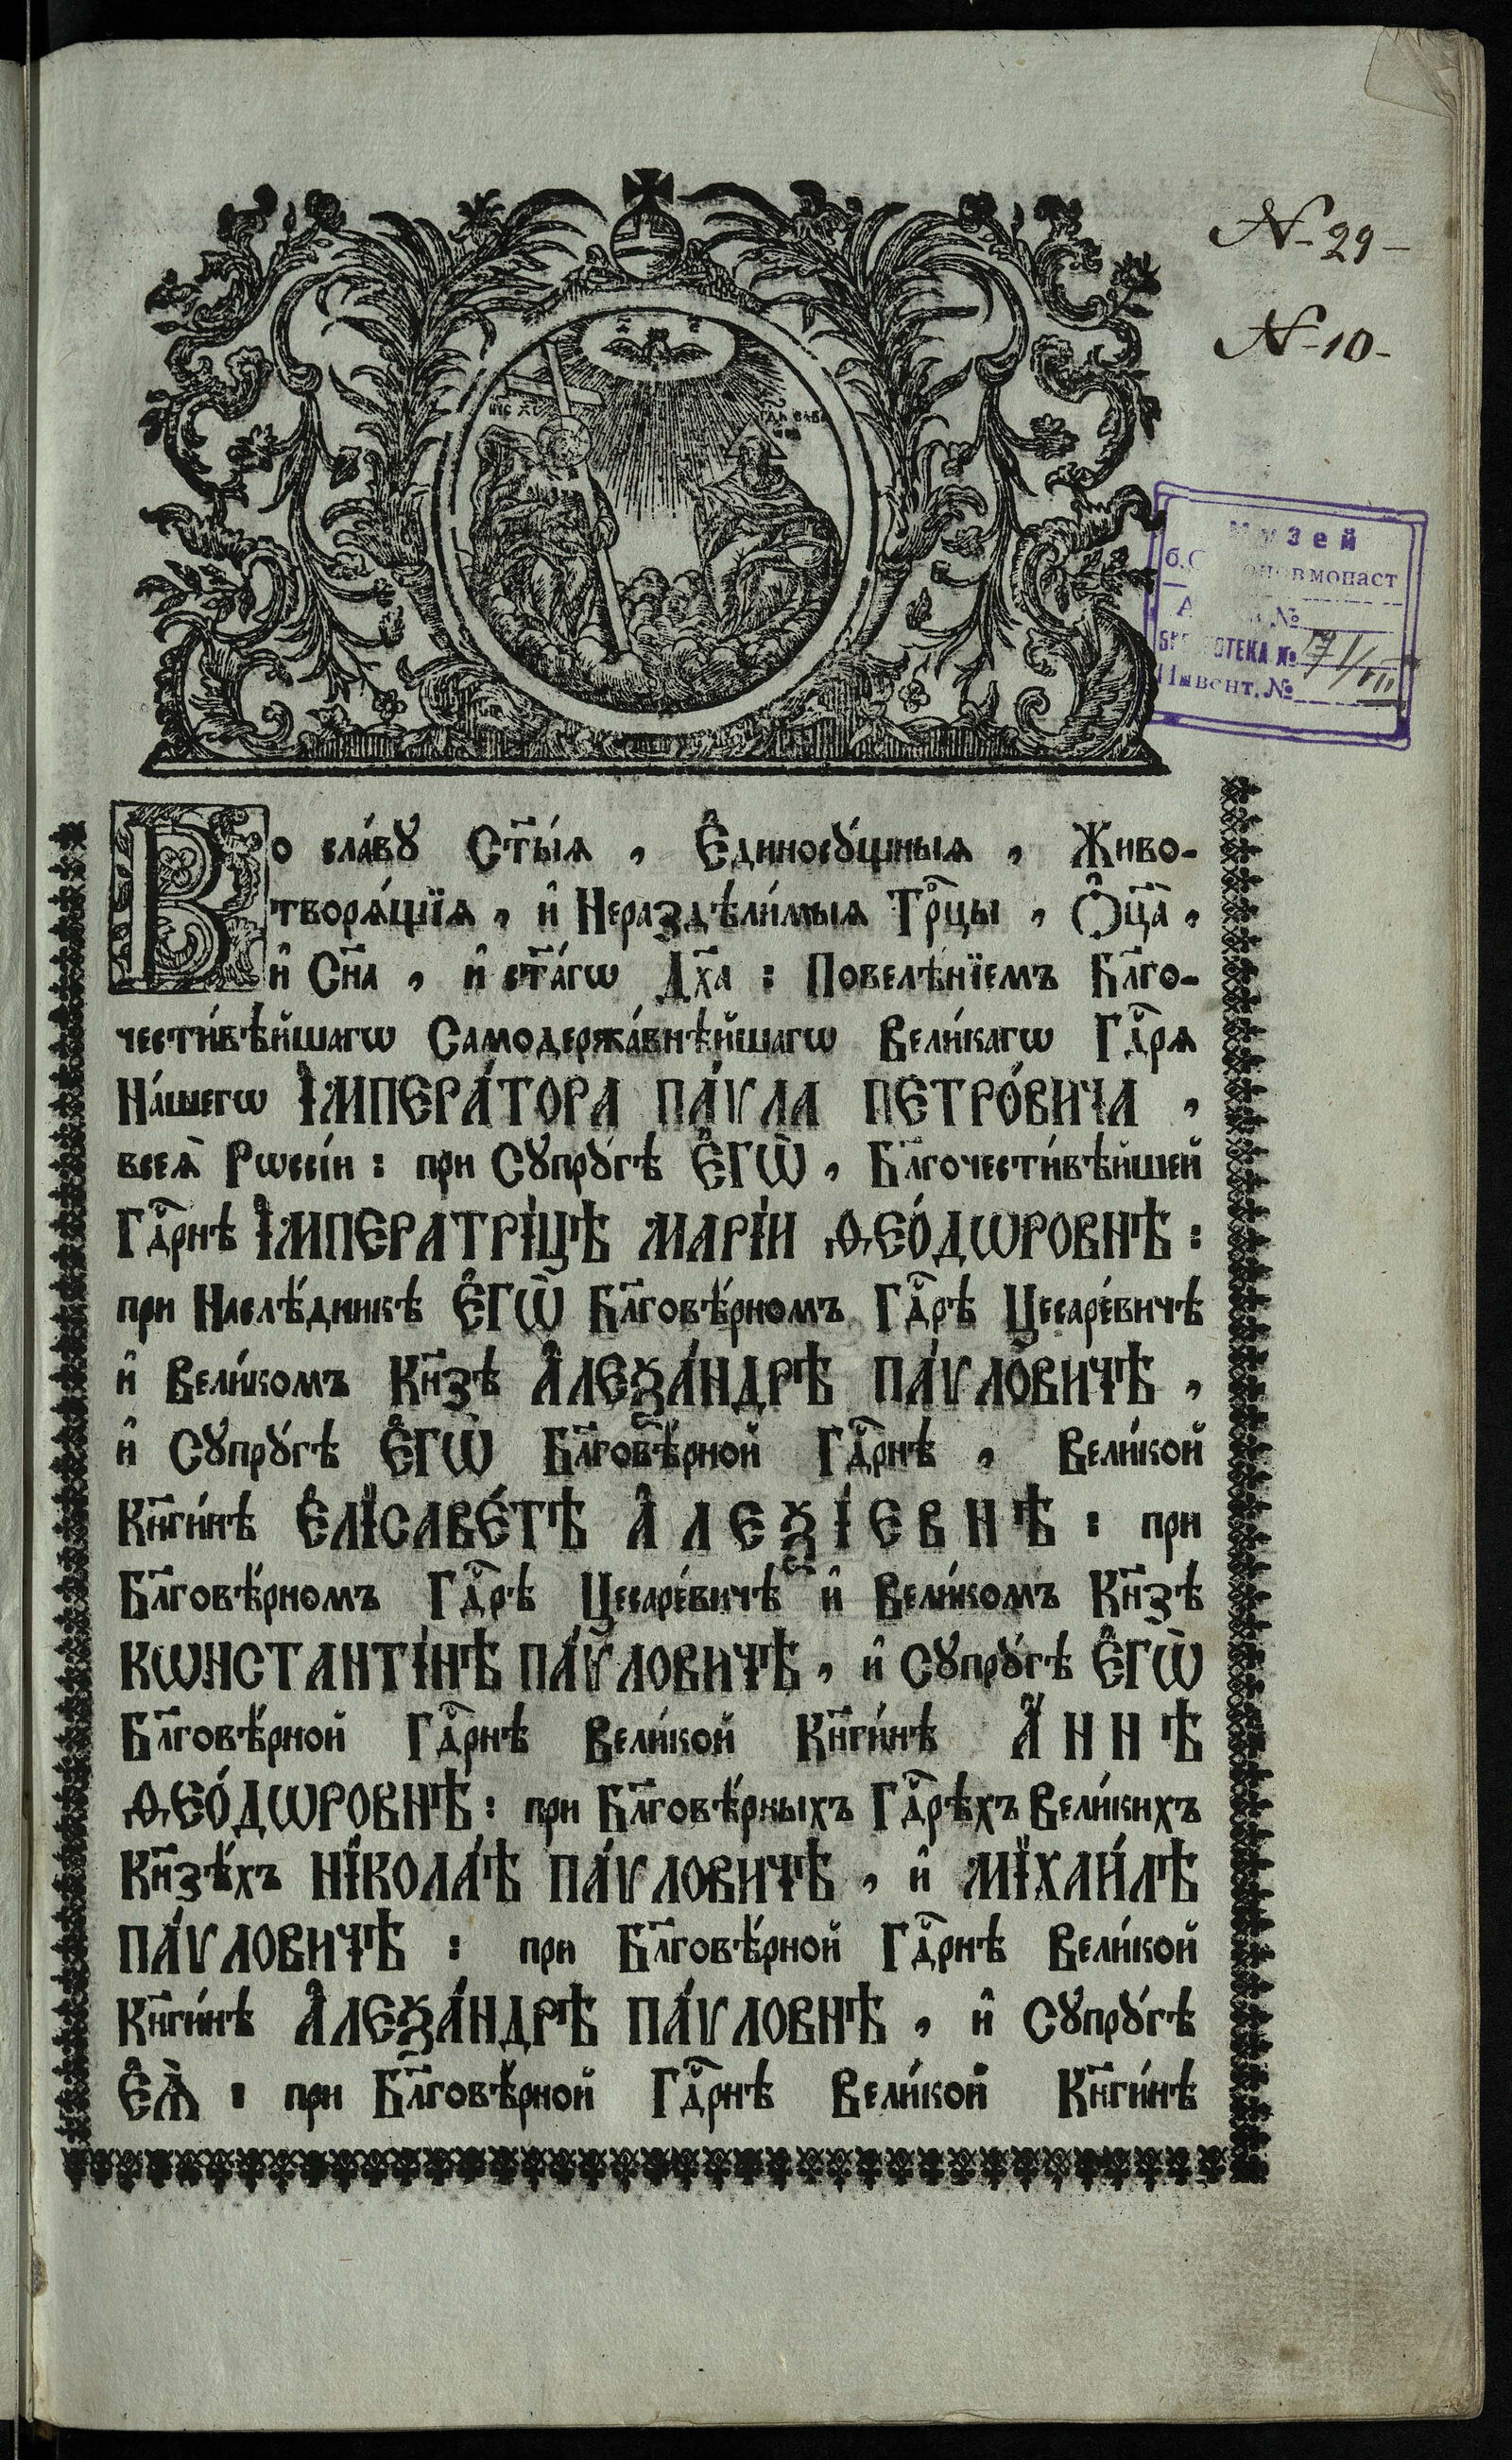 N-29-
N-10-
ІИС ХС
Музей
монаст
№
БИБЛИОТЕКА №
Инвент. №
Во сла́вꙋ Ст҃ы́ѧ, Є҆диносꙋ́щныѧ, Живо-
творѧ́щїѧ, и҆ Нераздѣли́мыѧ Трⷪ҇цы, Ѻ҆ц҃а̀,
и҆ Сн҃а, и҆ ст҃а́гѡ Дх҃а: Повелѣ́нїемъ Бл҃го-
чести́вѣйшагѡ Самодержа́внѣйшагѡ Вели́кагѡ Гдⷭ҇рѧ
На́шегѡ І҆МПЕРА́ТОРА ПА́ѴЛА ПЕТРО́ВИЧА,
всеѧ̀ Рѡссі́и: при Сꙋпрꙋ́гѣ Є҆ГѠ̀, Бл҃гочести́вѣйшей
Гдⷭ҇рнѣ І҆МПЕРАТРІ́ЦѢ МАРІ́И ѲЕО́ДѠРОВНѢ:
при Наслѣ́дникѣ Є҆ГѠ̀ Бл҃говѣ́рномъ Гдⷭ҇рѣ Цесаре́вичѣ
и҆ Вели́комъ Кн҃зѣ А҆ЛЕѮА́НДРѢ ПА́ѴЛОВИЧѢ,
и҆ Сꙋпрꙋ́гѣ Є҆ГѠ̀ Бл҃говѣ́рной Гдⷭ҇рнѣ, Вели́кой
Кн҃ги́нѣ Є҆ЛІСАВЕ́ТѢ А҆ЛЕѮІ́ЕВНѢ: при
Бл҃говѣ́рномъ Гдⷭ҇рѣ Цесаре́вичѣ и҆ Вели́комъ Кн҃зѣ
КѠНСТАНТІ́НѢ ПА́ѴЛОВИЧѢ, и҆ Сꙋпрꙋ́гѣ Є҆ГѠ̀
Бл҃говѣ́рной Гдⷭ҇рнѣ Вели́кой Кн҃ги́нѣ А҆́ННѢ
ѲЕО́ДѠРОВНѢ: при Бл҃говѣ́рныхъ Гдⷭ҇рѣхъ Вели́кихъ
Кн҃зѣ́хъ НІКОЛА́Ѣ ПА́ѴЛОВИЧѢ, и҆ МІХАИ́ЛѢ
ПА́ѴЛОВИЧѢ: при Бл҃говѣ́рной Гдⷭ҇рнѣ Вели́кой
Кн҃ги́нѣ А҆ЛЕѮА́НДРѢ ПА́ѴЛОВНѢ, и҆ Сꙋпрꙋ́гѣ
Є҆Ѧ̀: при Бл҃говѣ́рной Гдⷭ҇рнѣ Вели́кой Кн҃ги́нѣ